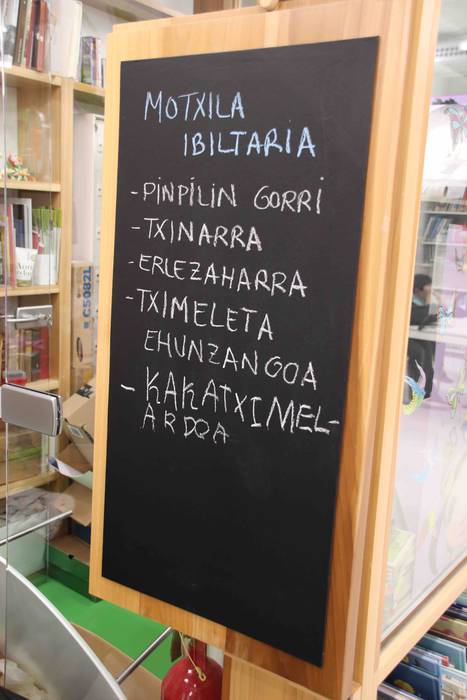 MOTXILA
IBILTARIA
-PINPILIN GORRI
-TXINARRA
-ERLEZAHARRA
-TXIMELETA
EHUNZANGOA
-KAKATXIMEL-
ARDOA